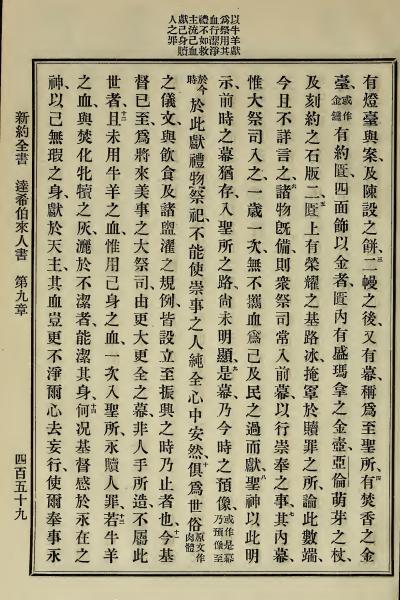 以牛羊獻
爲祭用其
血行潔淨
禮不如救
主流己血
獻己身贖
人之罪
有燈臺與案及陳設之餠、三二幔之後又有幕稱爲至聖所、四有焚香之金
臺、或作金鑪有約匱四面飾以金者、匱內有盛瑪拿之金壺、亞倫萌芽之杖、
及刻約之石版二、五匱上有榮耀之基路冰掩罩於贖罪之所、論此數端、
今且不詳言之、六諸物旣備、則衆祭司常入前幕、以行崇奉之事、七其內幕、
惟大祭司入之、一歲一次、無不攜血爲己及民之過而獻、八聖神以此明
示、前時之幕猶存、入聖所之路尚未明顯、九是幕乃今時之預像、或作是幕乃預像至
於今時於此獻禮物祭祀、不能使崇事之人純全心中安然、十俱爲世俗原文作肉體
之儀文、與飲食及諸盥濯之規例、皆設立至振興之時乃止者也、十一今基
督已至、爲將來美事之大祭司、由更大更全之幕、非人手所造、不屬此
世者、十二且未用牛羊之血、惟用己身之血、一次入聖所、永贖人罪、十三若牛羊
之血、與焚化牝犢之灰、灑於不潔者、能潔其身、十四何况基督感於永在之
神、以己無瑕之身、獻於天主、其血豈更不淨爾心去妄行、使爾奉事永
新約全書 達希伯來人書 第九章 四百五十九